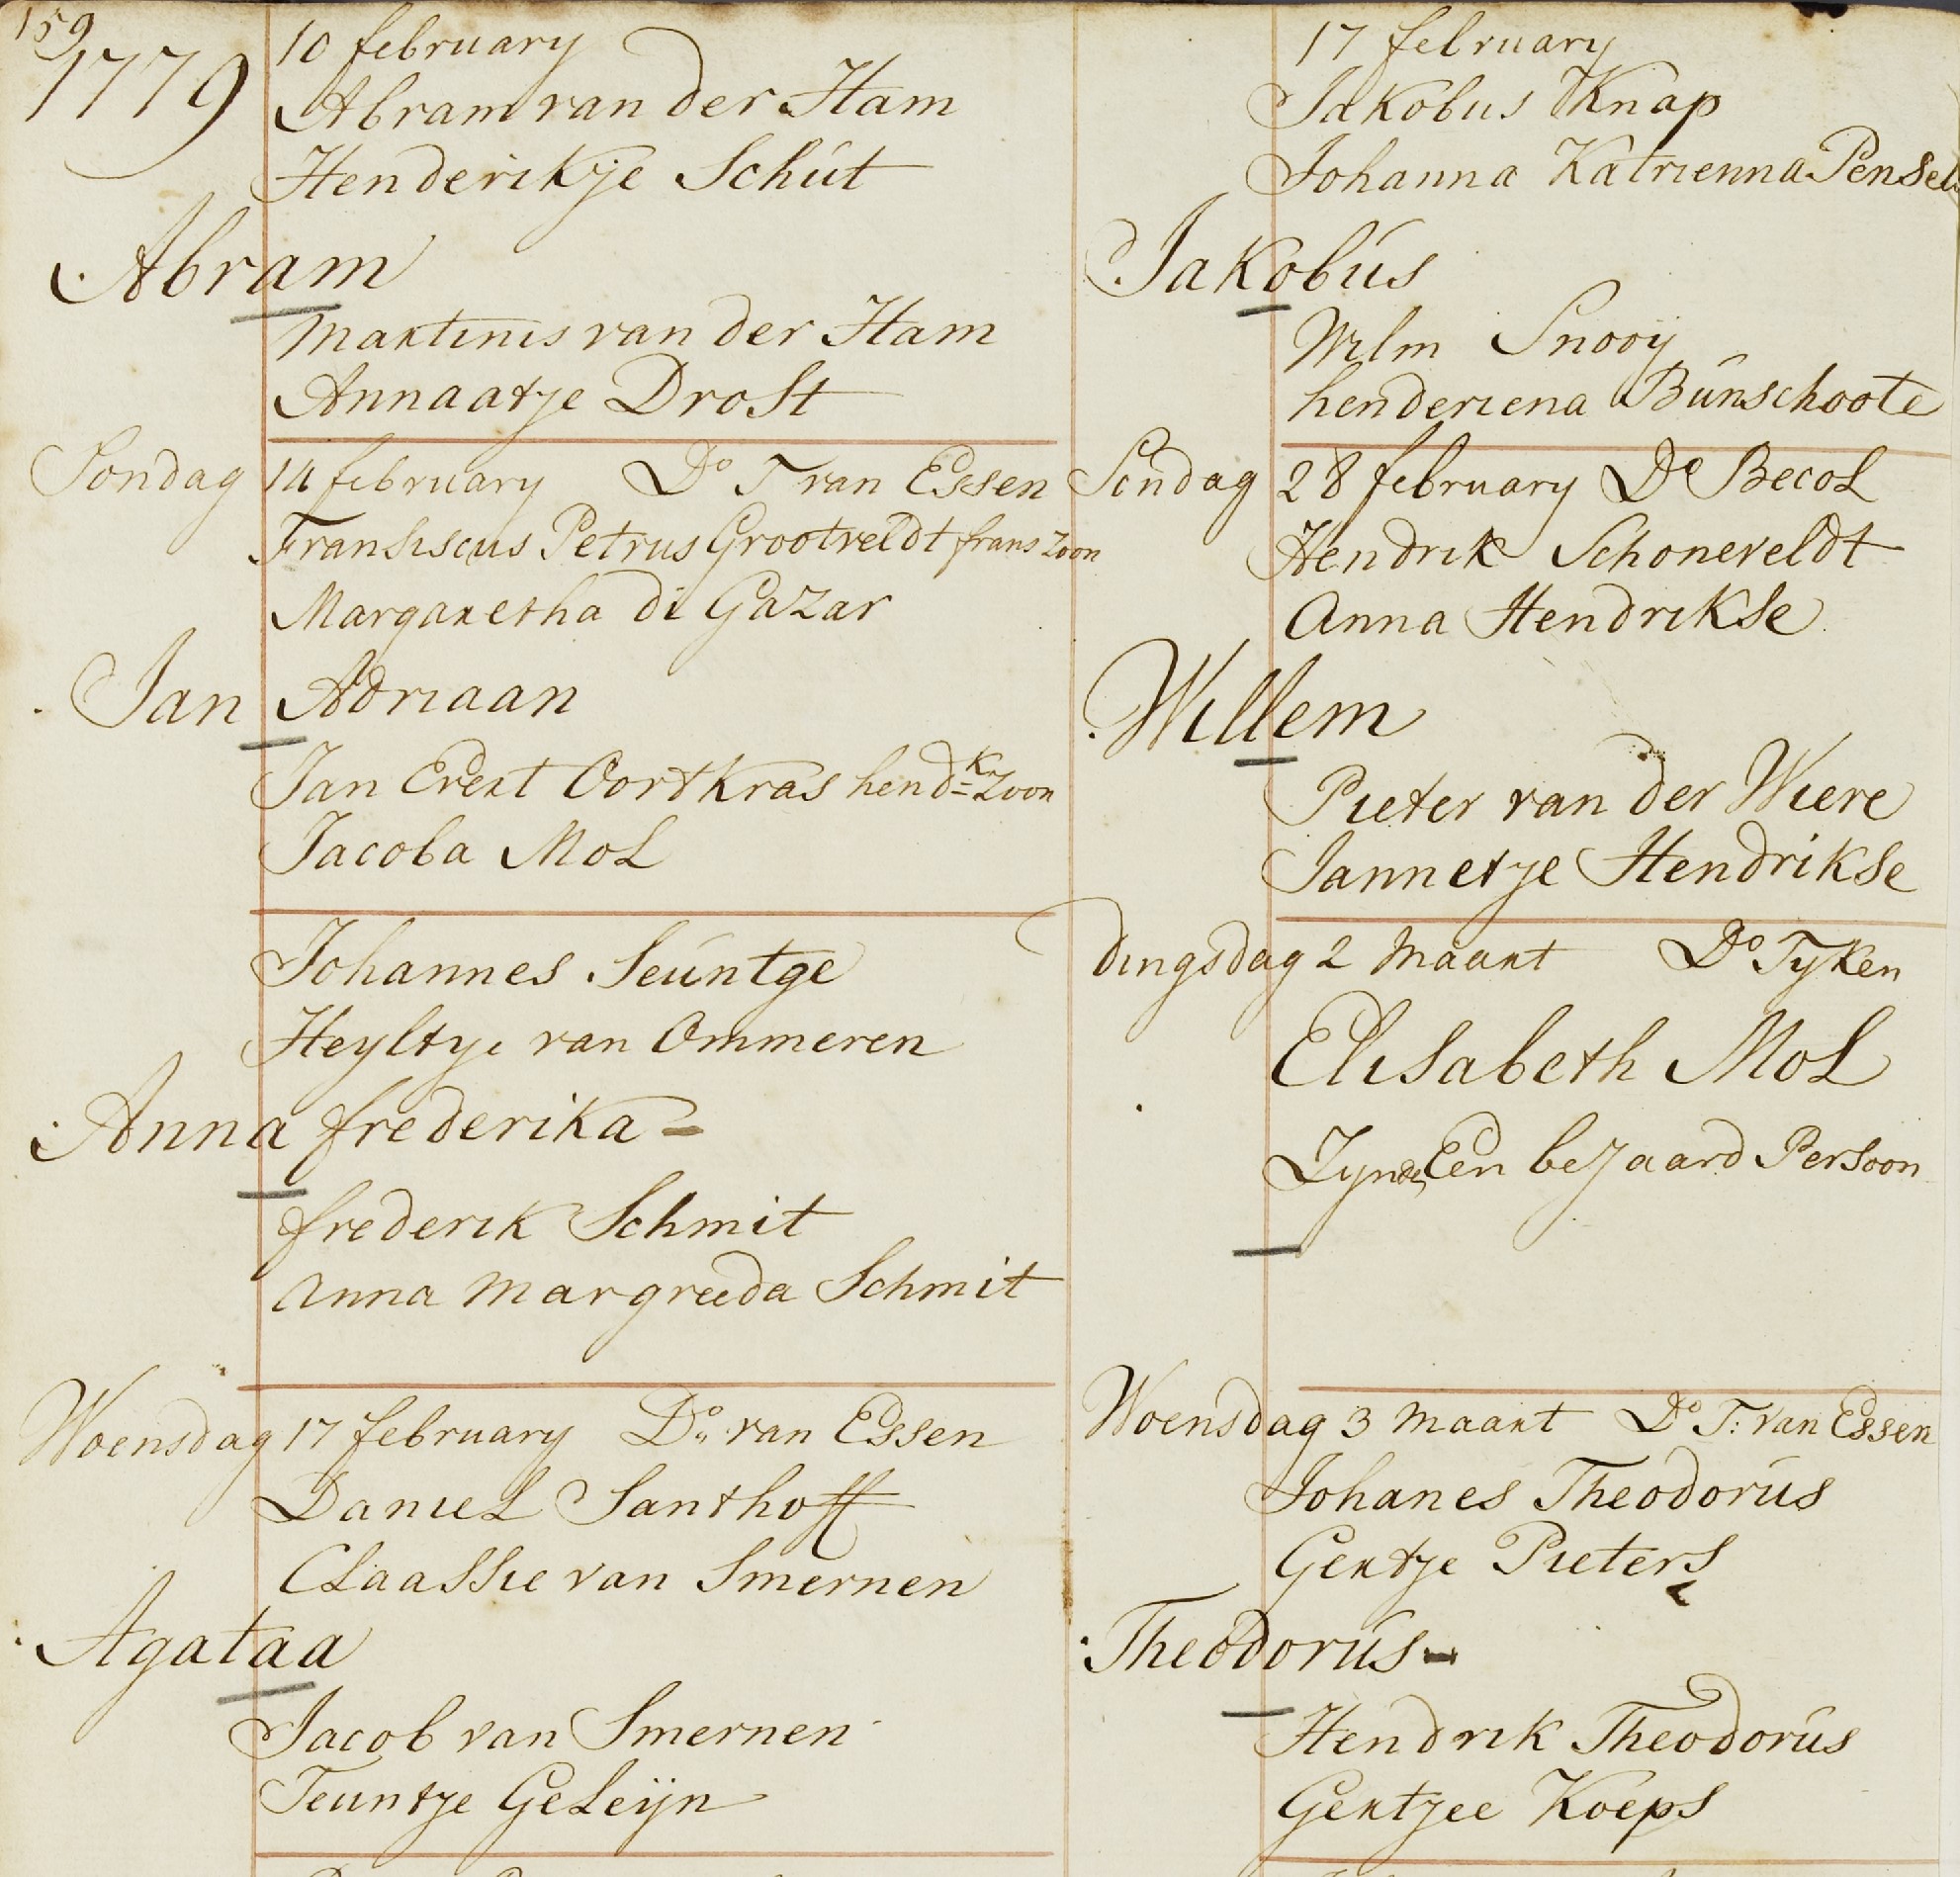 159
1779
10 february
Abram van der Ham
Henderikje Schút
Abram
Martinis van der Ham
Annaatje Drost
Sondag 14 february Do T van Essen
Fransiscus Petrus Grootveldt frans Zoon
Margaretha di Gazar
Jan Adriaan
Jan Evert Oortkras hendk Zoon
Jacoba Mol
Johannes Seúntge
Heyltye van Ommeren
Anna frederika
frederik Schmit
Anna Margreeda Schmit
Woensdag 17 february Do van Essen
Daniel Santhoff
Claassie van Smernen
Agataa
Jacob van Smernen
Teuntje Geleijn
17 february
Jakobus Knap
Johanna Katrienna
Jakobús
Wilm Snooij
henderiena Búnschoote
Sondag 28 february De Becol
Hendrik Schoneveldt
Anna Hendrikse
Willem
Pieter van der Wiere
Jannetje Hendrikse
dingsdag 2 Maart Do Tyken
Elisabeth Mol
Zynde Een bejaard Persoon
Woensdag 3 Maart Do T: van Essen
Johanes Theodorús
Gertje Pieters
Theodorús
Hendrik Theodorús
Gertjee Koeps